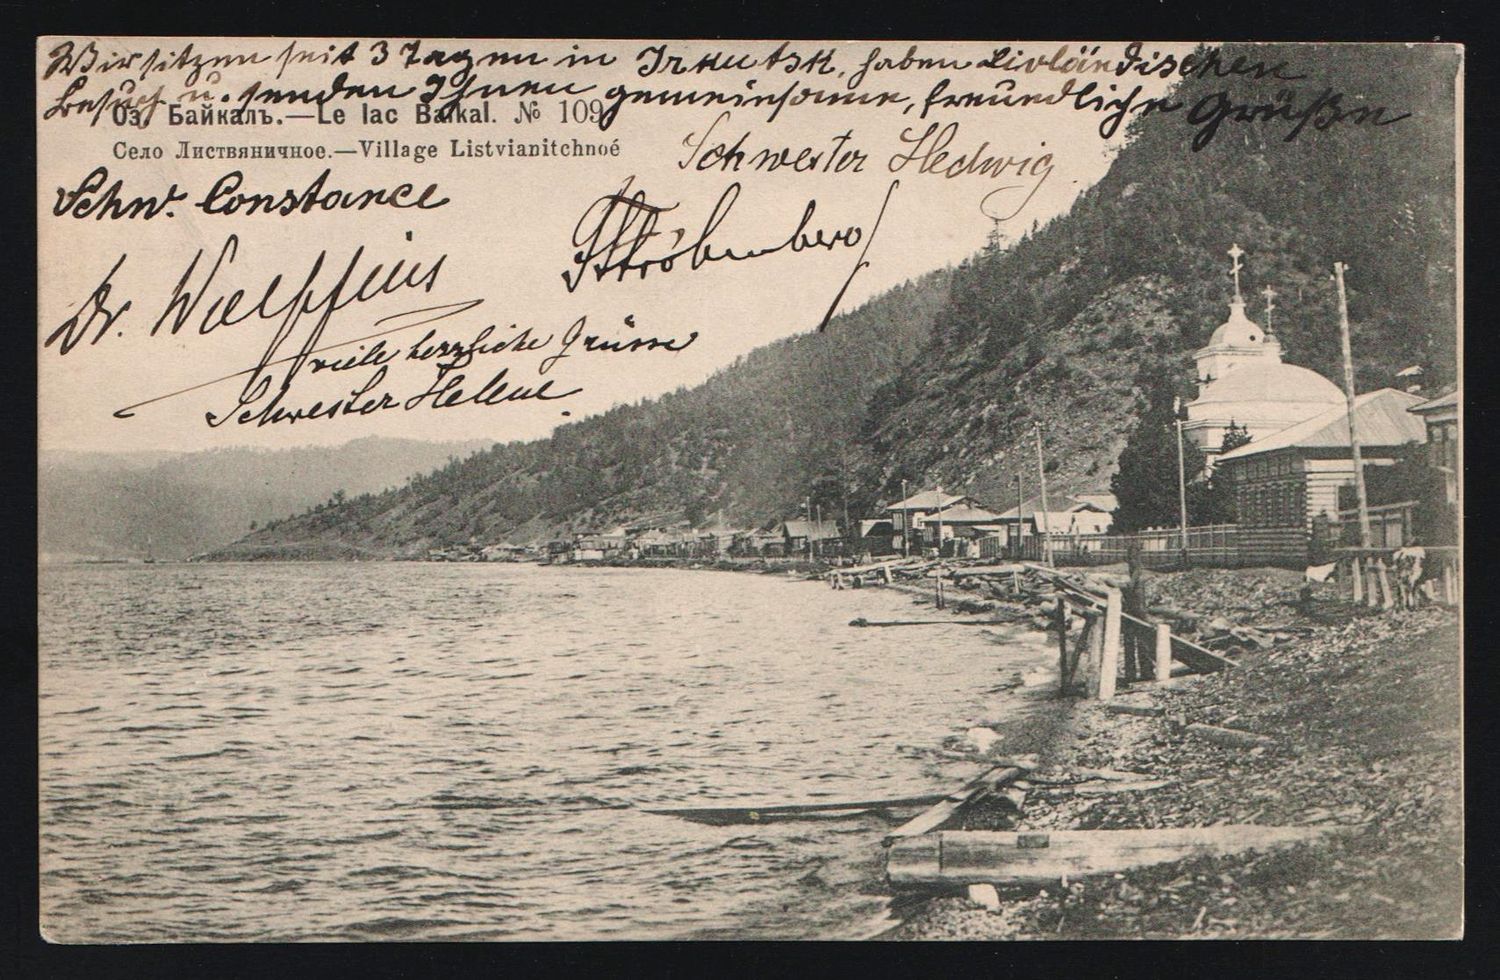 Wir sitzen seit 3 Tagen in Irkutsk, haben Livländischen
Besuch u. senden Ihnen gemeinsame, freundliche Grüße
Оз. Байкалъ.—Le lac Baïkal. № 109
Село Листвяничное.—Village Listvianitchnoé
Schwester Hedwig
Schw. Constance
Ströhmberg
Dr. Woelffius
viele herzliche Grüsse
Schwester Helene.